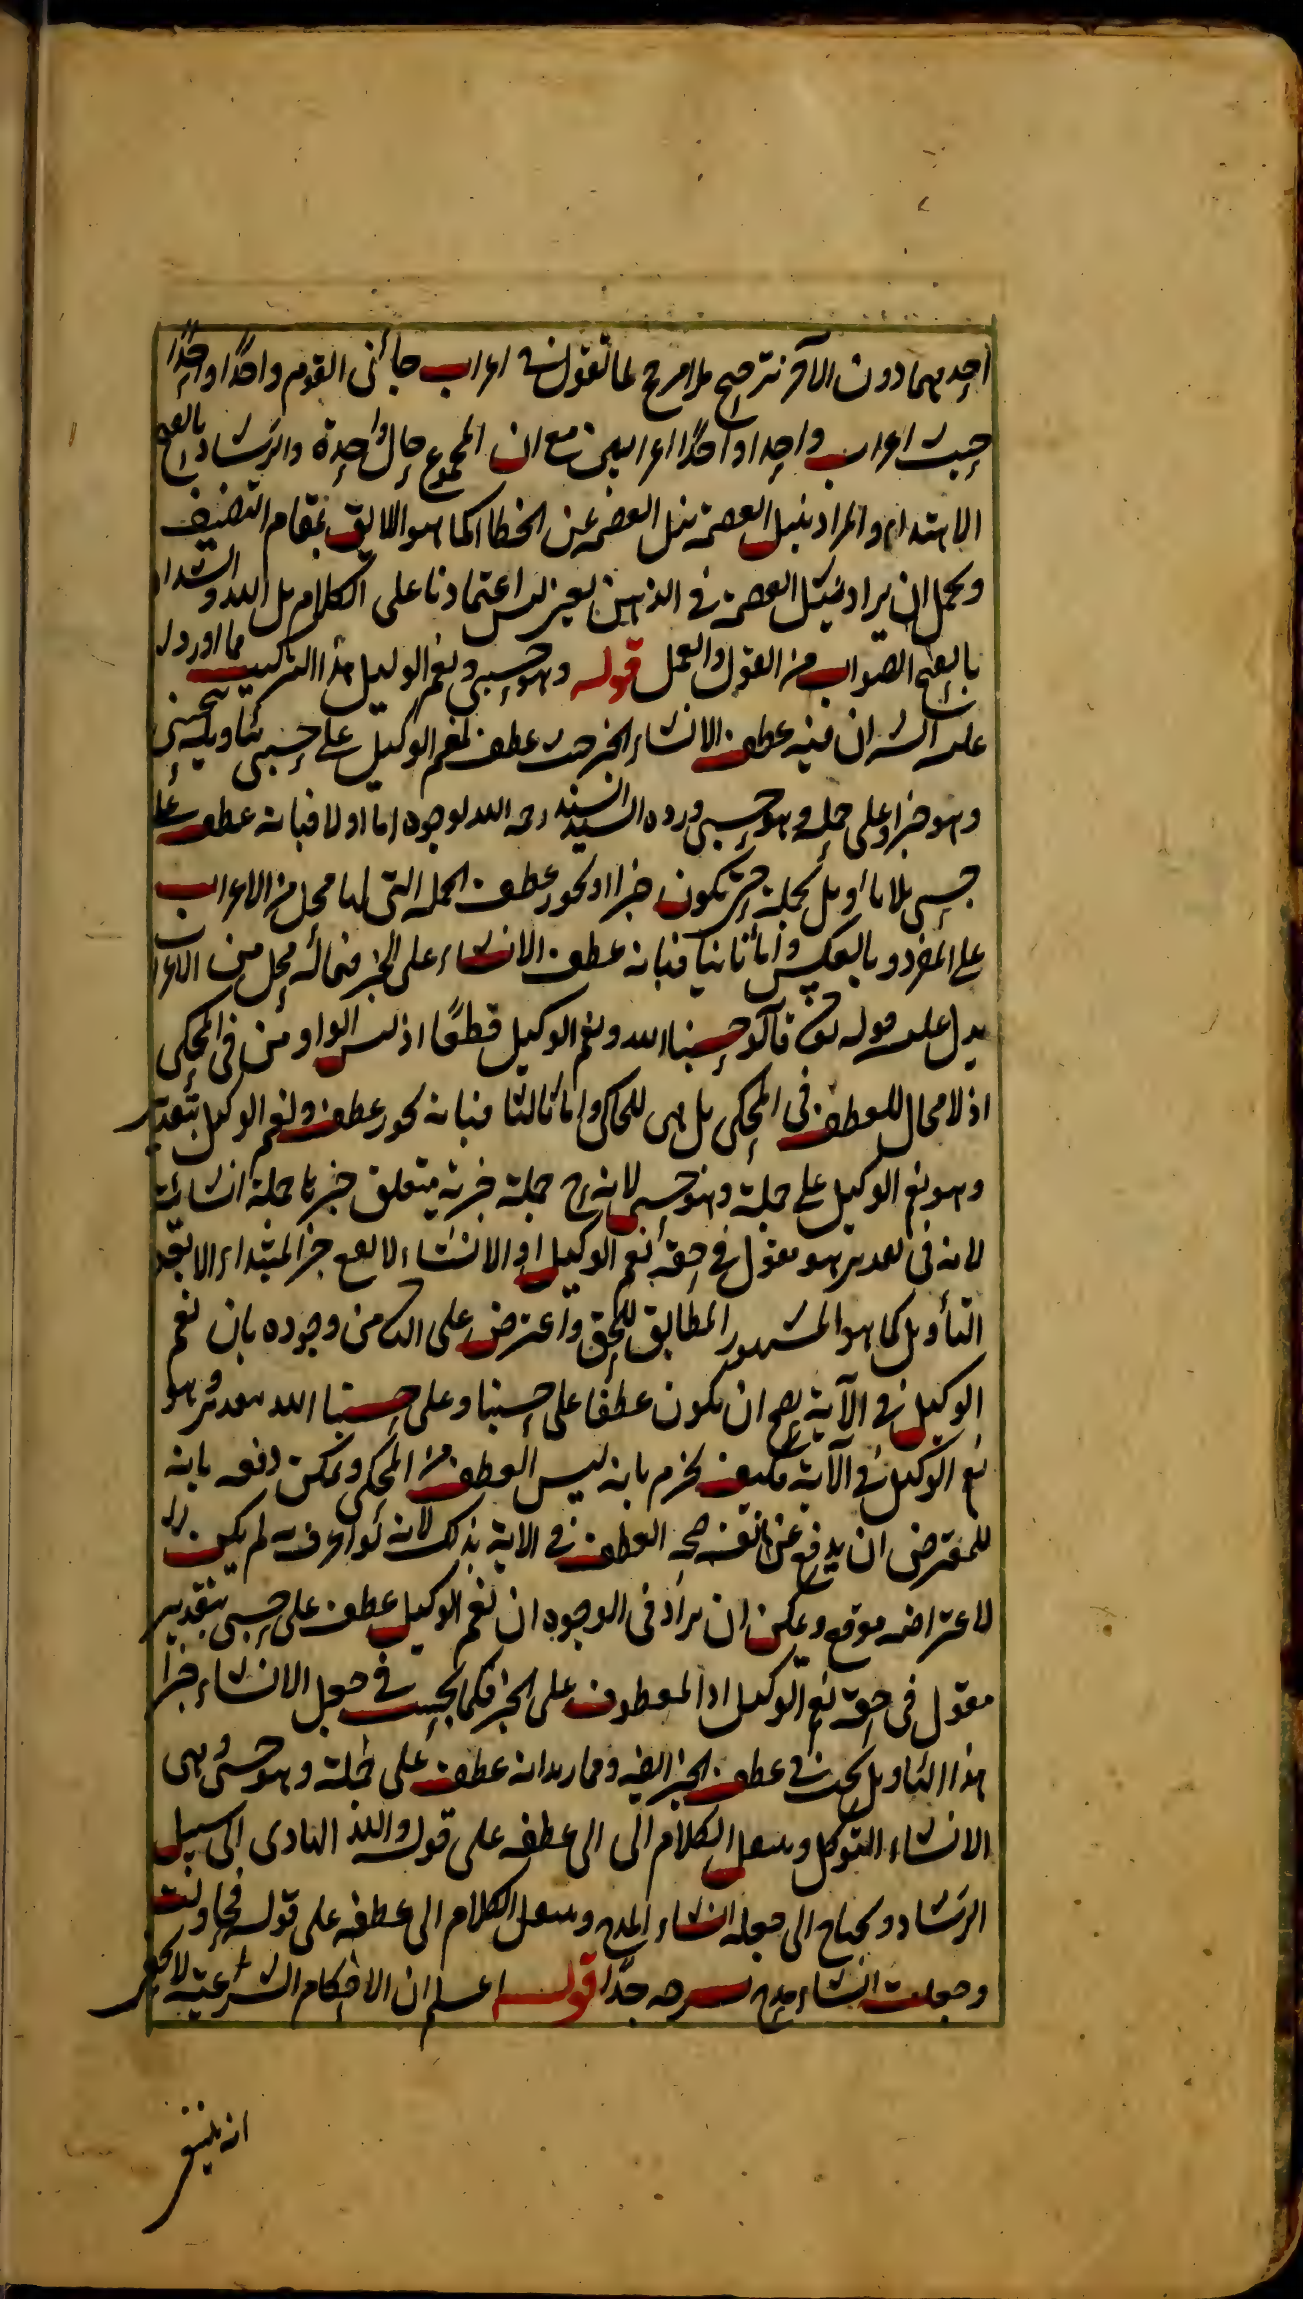 احديهما دون الآخر ترجيح بلا مرجح لما تقول في اعراب جائنى القوم واحدًا واحدًا
حيث اعراب واحدا واحدًا اعرابين مع ان المجموع حال واحدة والرشاد بالفتح
الاهتداء والمراد بنيل العصمة نيل العصمة عن الخطا كما هو اللايق بمقام التصنيف
ويحمل ان يراد بنيل العصمة في الذهن يعنى ليس اعتمادنا على الكلام بل الله والسداد
بالفتح الصواب من القول والعمل قوله وهو حسبى ونعم الوكيل هذا التركيب مما اورد
على ان فيه عطف الانشاء الخبر حيث عطف نعم الوكيل على حسبى بتاويل يحسبنى
وهو خبر او على جملة وهو حسبى ورده السيد السند رحمه الله لوجوه اما اولا فبانه عطف على
حسبى بلا تاويل بجملة حتى تكون خبرا او يجوز عطف الجملة التى لها محل من الاعراب
على المفرد وبالعكس واما ثانيا فبانه عطف الانشاء على الخبر فيما له محل من الاعراب
يدل عليه قوله تعالى قالوا حسبنا الله ونعم الوكيل قطعًا اذ ليس الواو من فى المحكى
اذ لا مجال للعطف فى المحكى بل هى للحاكى واما ثالثا فبانه يجوز عطف ونعم الوكيل بتقدير
وهو نعم الوكيل على جملة وهو حسبى لانه ح جملة خبرية متعلق خبرها جملة انشائية
لانه فى تقدير هو مقول فى حقه نعم الوكيل اذ الانشاء لا يقع خبر المبتداء الا بعد
التأويل كما هو المشهور المطابق للحق واعترض على الثا من وجوده بان نعم
الوكيل في الآية يصح ان يكون عطفًا على حسبنا وعلى حسبنا الله بتقدير هو
نعم الوكيل في الآية فكيف نجزم بانه ليس العطف من المحكى ويمكن دفعه بانه
للمعترض ان يدفع عن نفسه صحة العطف في الاية بذلك لانه لو اعرف به لم يكن
لاعتراضه موقع ويمكن ان يراد فى الوجوه ان نعم الوكيل عطف على حسبى بتقدير
مقول فى حقه نعم الوكيل اذ المعطوف على الخبر فكما يجب في جعل الانشاء خبرا
هذا التاويل يجب في عطف الخبر ايضه ومما انه عطف على جملة وهو حسبى وهى
الانشاء التوكل وينقل الكلام الى الى عطفه على قوله والله الهادى الى سبيل
الرشاد ويحتاج الى جعله انشاء المدح وينقل الكلام الى عطفه على قوله فحاولت
وجعلت انشاء مدح جدًا قوله اعلم ان الاحكام الشرعية لا يخفى
انه يلتبس